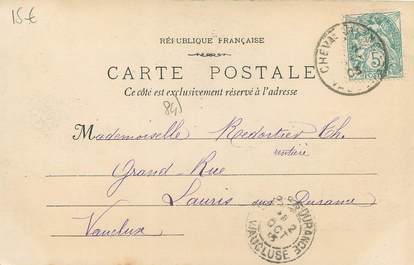 15€
RÉPUBLIQUE FRANÇAISE
CARTE POSTALE
Ce côté est exclusivement réservé à l'adresse
84)
Mademoiselle Redortier Ch.
rentière
Grand-Rue
Lauris sur Durance
Vaucluse
5
DURANCE
VAUCLUSE